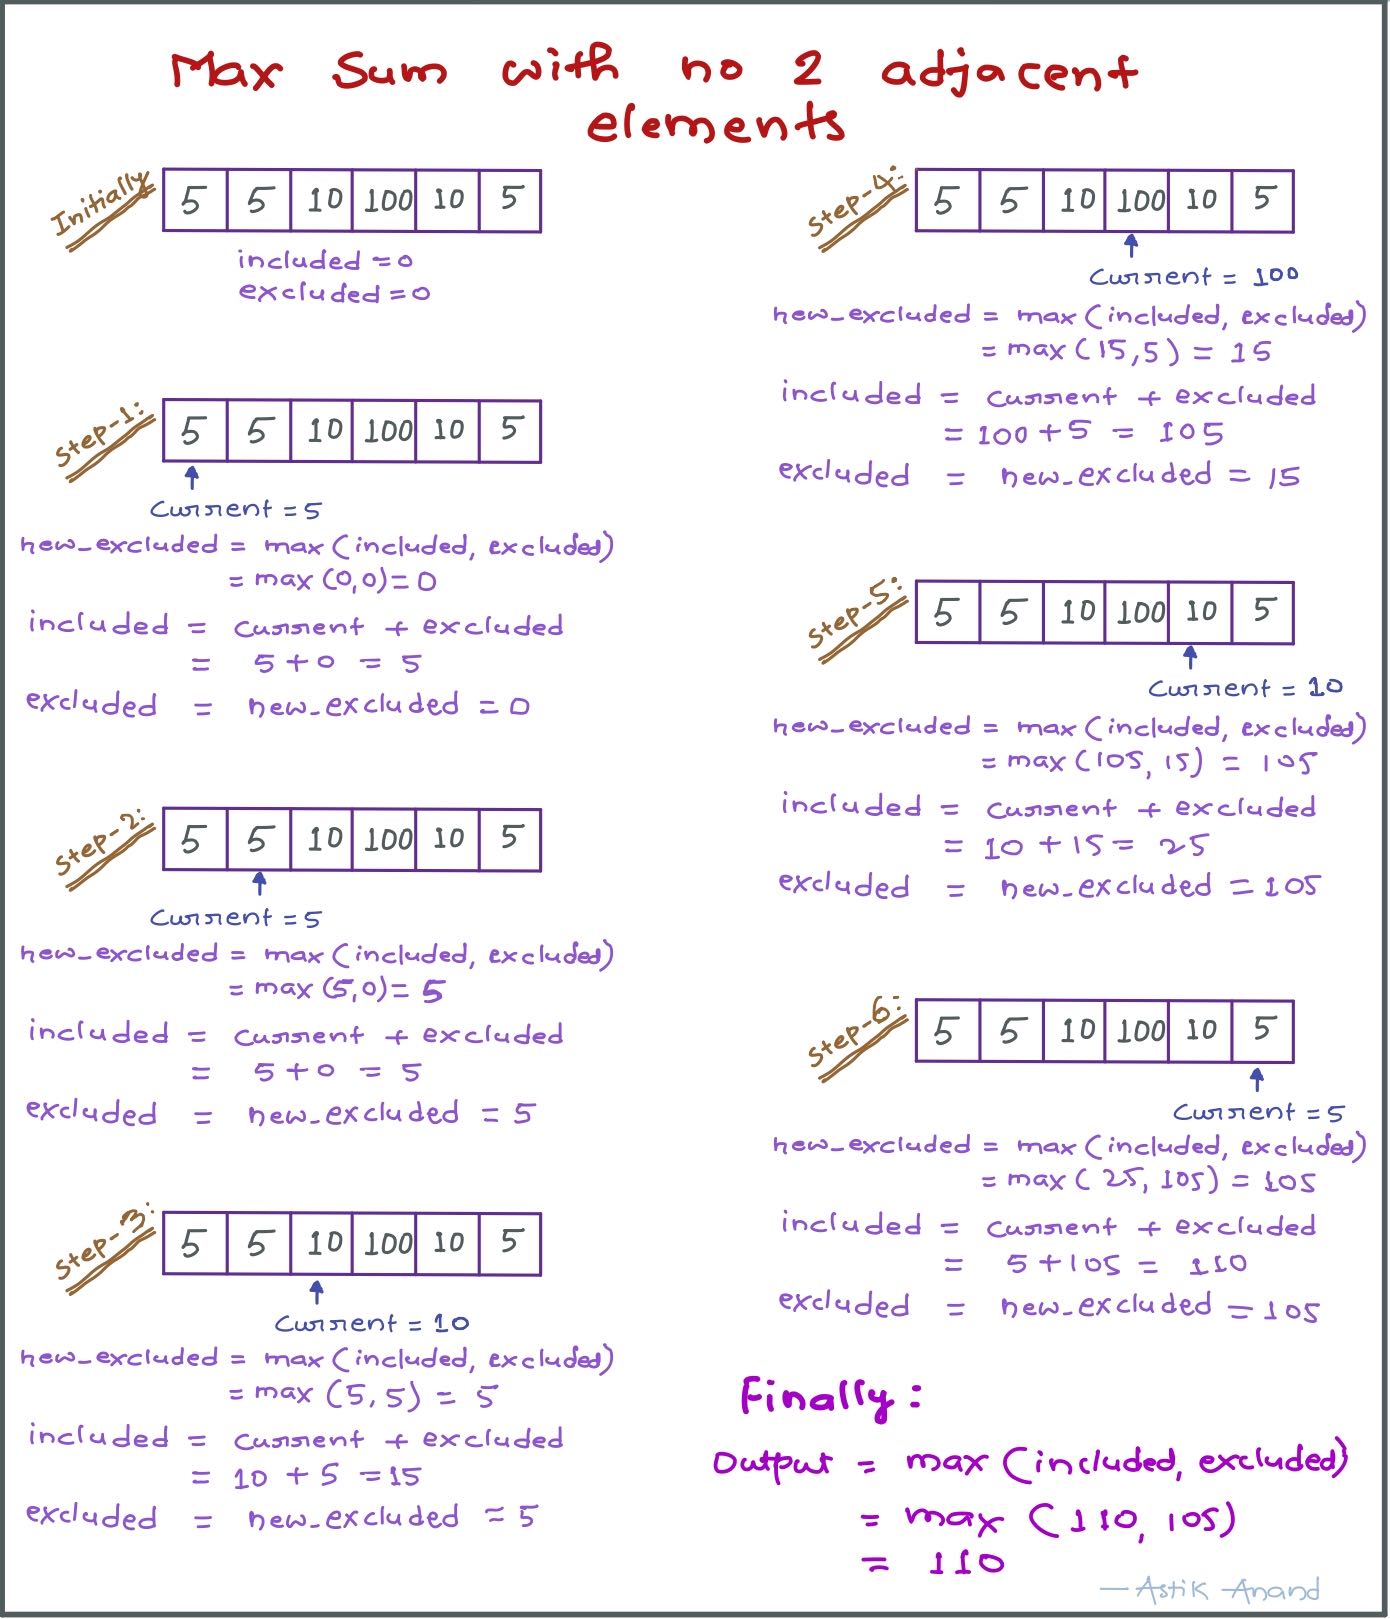 Max Sum with no 2 adjacent
elements
Initially
5 5 10 100 10 5
included = 0
excluded = 0
Step-1:
5 5 10 100 10 5
Current = 5
new_excluded = max (included, excluded)
= max (0,0) = 0
included = current + excluded
= 5 + 0 = 5
excluded = new_excluded = 0
Step-2:
5 5 10 100 10 5
Current = 5
new_excluded = max (included, excluded)
= max (5,0) = 5
included = current + excluded
= 5 + 0 = 5
excluded = new_excluded = 5
Step-3:
5 5 10 100 10 5
Current = 10
new_excluded = max (included, excluded)
= max (5,5) = 5
included = current + excluded
= 10 + 5 = 15
excluded = new_excluded = 5
Step-4:
5 5 10 100 10 5
Current = 100
new_excluded = max (included, excluded)
= max (15,5) = 15
included = current + excluded
= 100 + 5 = 105
excluded = new_excluded = 15
Step-5:
5 5 10 100 10 5
Current = 10
new_excluded = max (included, excluded)
= max (105, 15) = 105
included = current + excluded
= 10 + 15 = 25
excluded = new_excluded = 105
Step-6:
5 5 10 100 10 5
Current = 5
new_excluded = max (included, excluded)
= max (25, 105) = 105
included = current + excluded
= 5 + 105 = 110
excluded = new_excluded = 105
Finally:
Output = max (included, excluded)
= max (110, 105)
= 110
— Astik Anand